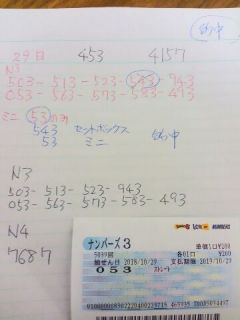 的中
29日 453 4157
N3
503-513-523-543-943
053-563-573-583-493
ミニ 53のみ
543 セットボックス 的中
53 ミニ
N3
503-513-523-943
053-563-573-583-493
N4
7687
ナンバーズ3
単価1口¥200
第5039回 各01口 ¥200
抽せん日 2018/10/29 支払期限 2019/10/29
053 ストレート